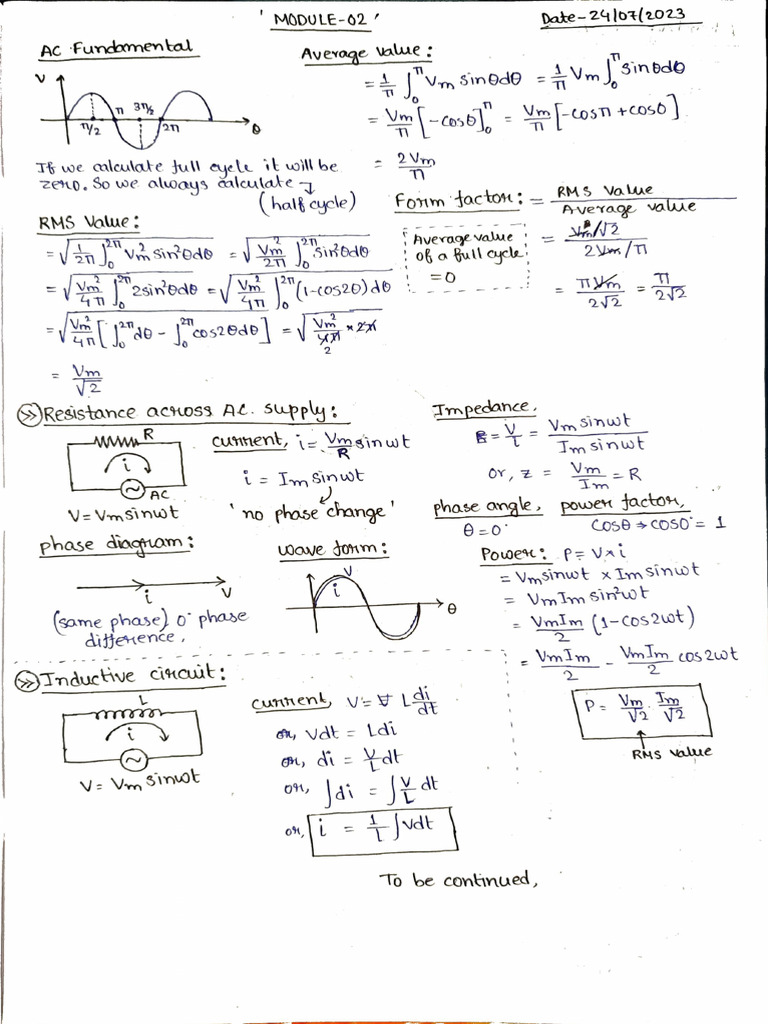 'MODULE-02'
Date-24/07/2023
AC Fundamental
V
π/2 π 3π/2 2π θ
If we calculate full cycle it will be
zero. So we always calculate →
(half cycle)
Average value:
= 1/π ∫₀^π Vm sinθdθ = 1/π Vm ∫₀^π sinθdθ
= Vm/π [-cosθ]₀^π = Vm/π [-cosπ + cos0]
= 2Vm/π
RMS Value:
= √(1/2π ∫₀^2π Vm² sin²θdθ) = √(Vm²/2π ∫₀^2π sin²θdθ)
= √(Vm²/4π ∫₀^2π 2sin²θdθ) = √(Vm²/4π ∫₀^2π (1-cos2θ)dθ)
= √(Vm²/4π [∫₀^2π dθ - ∫₀^2π cos2θdθ]) = √(Vm²/4π × 2π)
2
= Vm/√2
Form factor: = RMS Value / Average value
= Vm/√2 / 2Vm/π
= πVm/2√2 = π/2√2
Average value
of a full cycle
= 0
>> Resistance across AC. supply:
R
i
AC
V = Vm sinωt
current, i = Vm/R sinωt
i = Im sinωt
'no phase change'
Impedance,
= V/i = Vm sinωt / Im sinωt
or, z = Vm/Im = R
phase angle,
θ = 0°
power factor,
cosθ → cos0° = 1
phase diagram:
i V
(same phase) 0° phase
difference,
wave form:
V
i
θ
Power: P = V×i
= Vm sinωt × Im sinωt
= VmIm sin²ωt
= VmIm/2 (1-cos2ωt)
= VmIm/2 - VmIm/2 cos2ωt
P = Vm/√2 . Im/√2
RMS value
>> Inductive circuit:
L
i
V = Vm sinωt
current, V = L di/dt
or, Vdt = Ldi
or, di = V/L dt
or, ∫di = ∫V/L dt
or, i = 1/L ∫Vdt
To be continued,